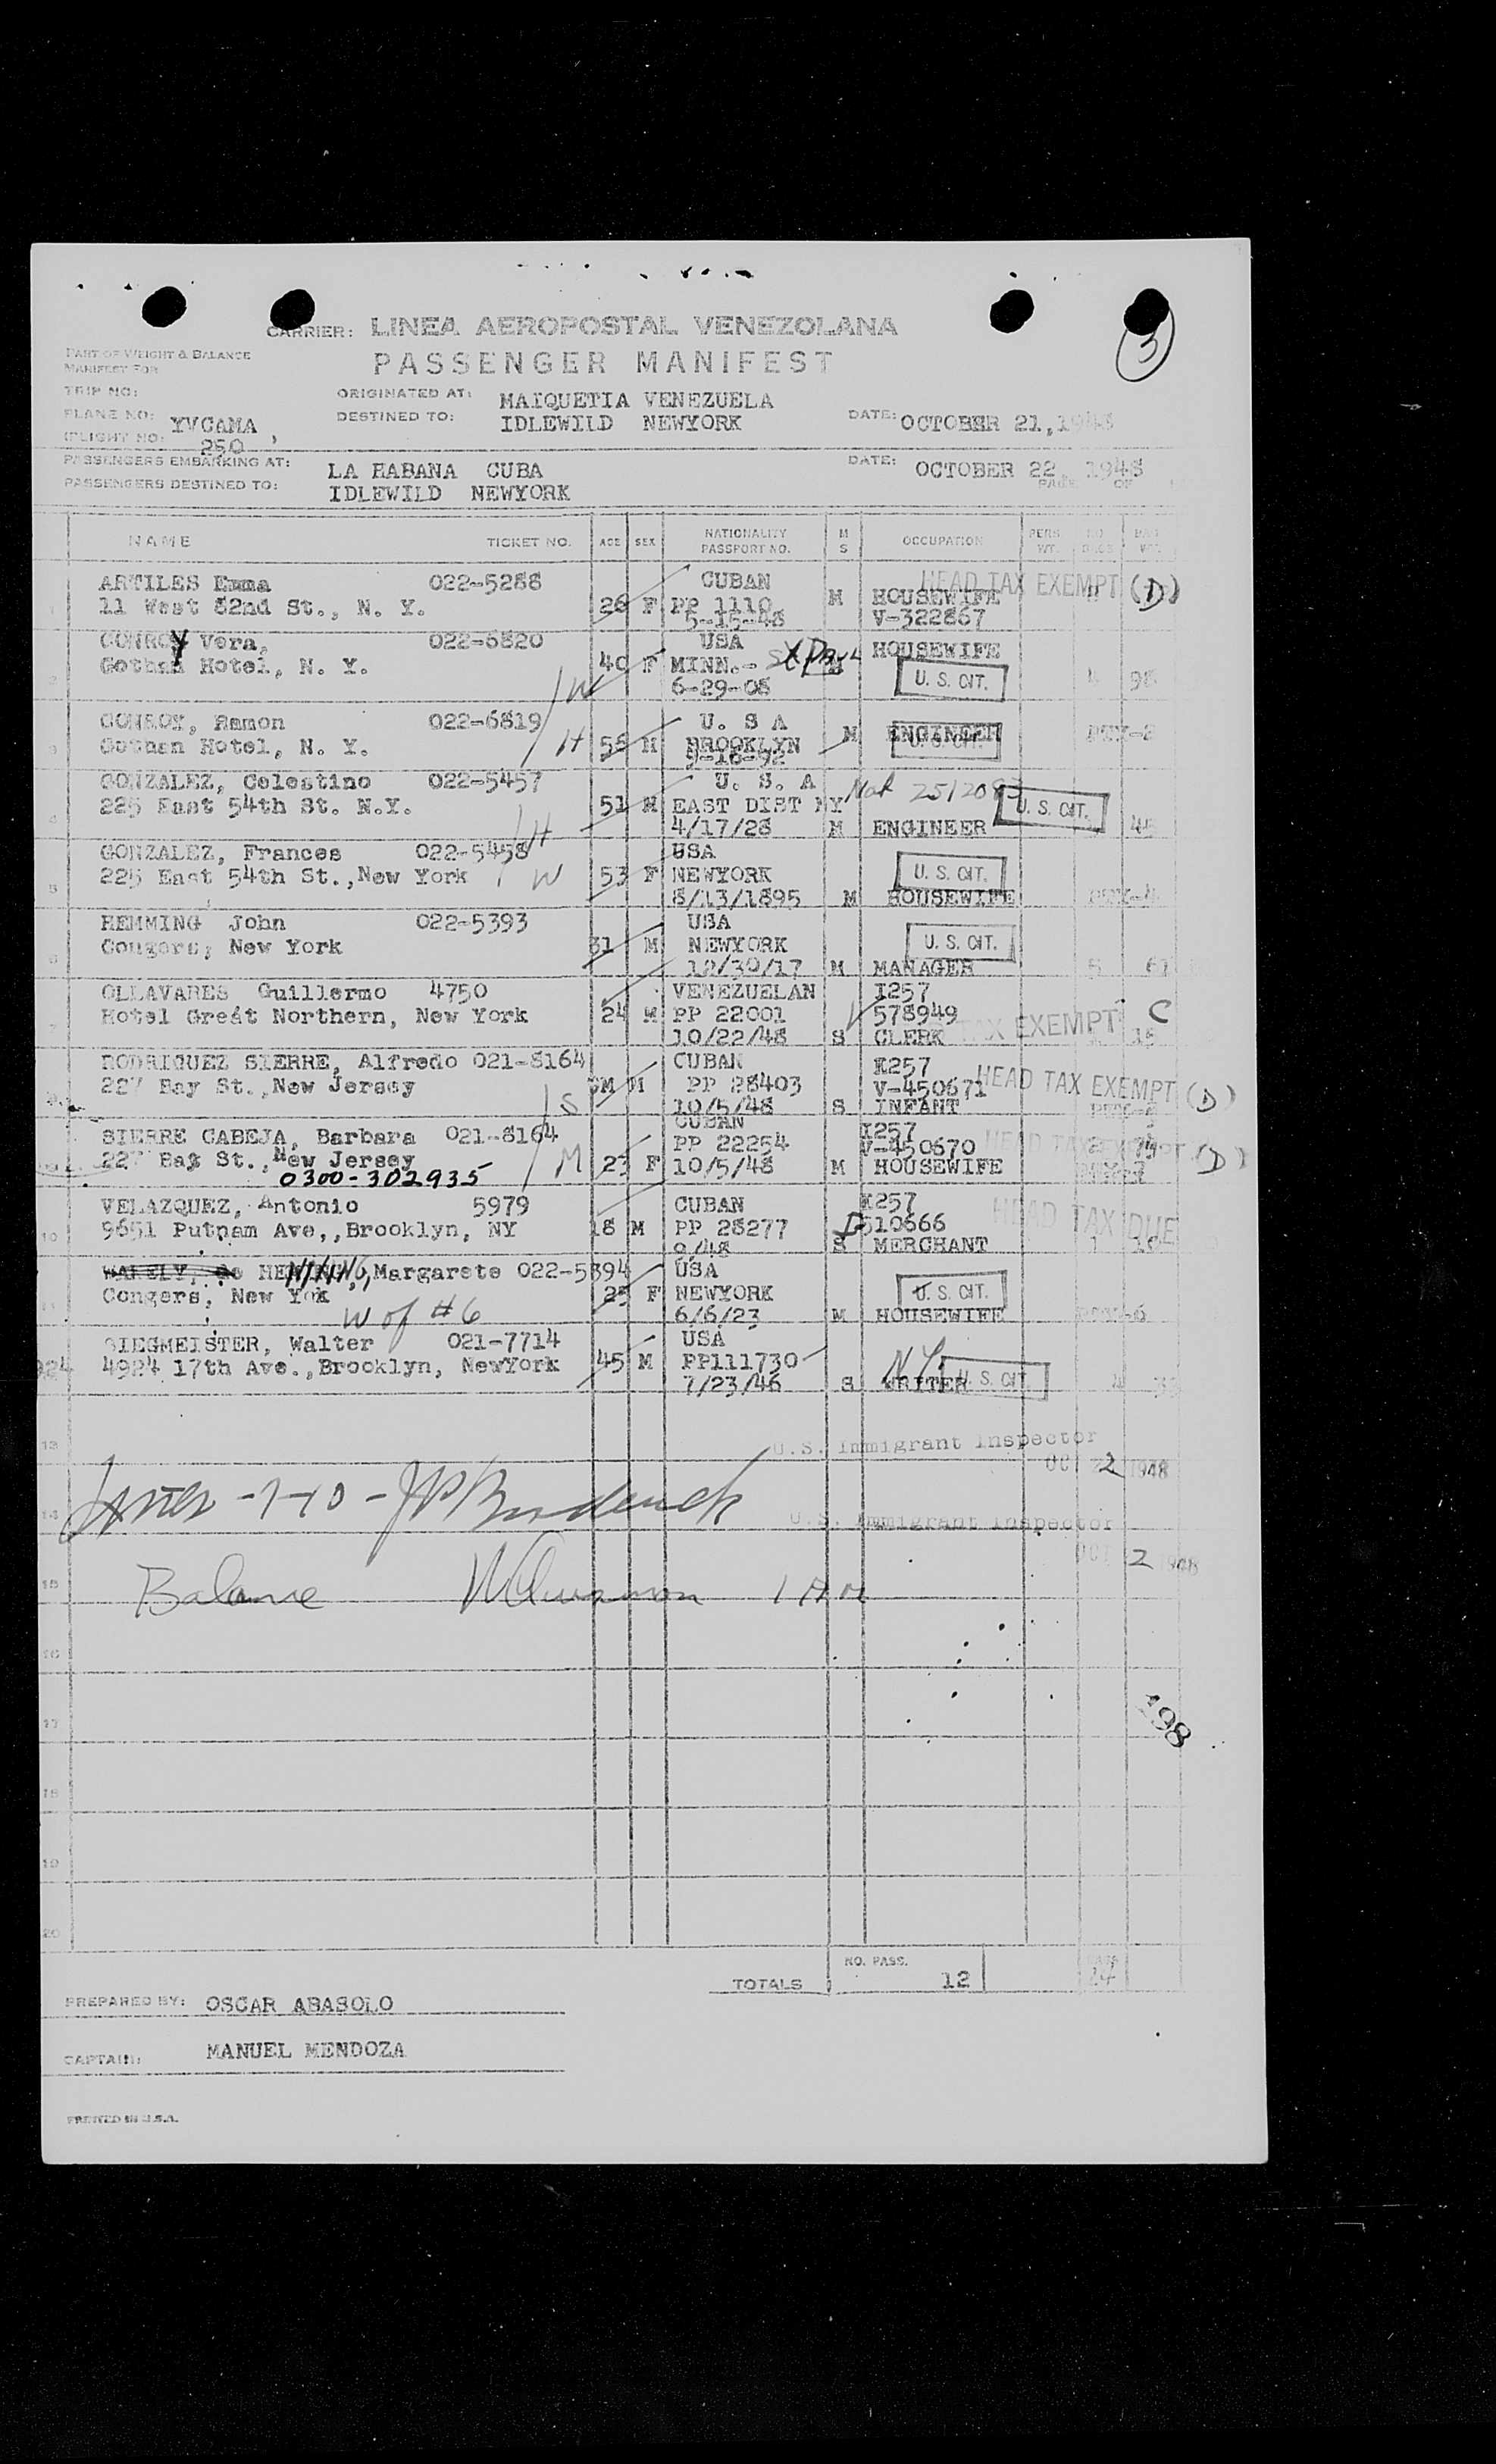 3
CARRIER: LINEA AEROPOSTAL VENEZOLANA
PART OF WEIGHT & BALANCE
MANIFEST FOR
PASSENGER MANIFEST
TRIP NO:
ORIGINATED AT: MAIQUETIA VENEZUELA
PLANE NO: YVCAMA,
DESTINED TO: IDLEWILD NEWYORK
DATE: OCTOBER 21, 1948
FLIGHT NO: 250
PASSENGERS EMBARKING AT: LA HABANA CUBA
DATE: OCTOBER 22, 1948
PASSENGERS DESTINED TO: IDLEWILD NEWYORK
PAGE OF
NAME TICKET NO. AGE SEX NATIONALITY PASSPORT NO. M S OCCUPATION PERS. WT.
ARTILES Emma 022-5288 CUBAN HEAD TAX EXEMPT (D)
11 West 82nd St., N. Y. 26 F PP 1110 M HOUSEWIFE
5-15-48 V-322867
CONROY Vera, 022-6820 USA HOUSEWIFE
Gotham Hotel, N. Y. 40 F MINN.- St Paul M U. S. CIT. 98
/W 6-29-08
CONROY, Ramon 022-6819 U. S A
Gotham Hotel, N. Y. /H 56 M BROOKLYN M ENGINEER U. S. CIT.
9-16-92
GONZALEZ, Celestino 022-5457 U. S. A Nat 2512083
225 East 54th St. N.Y. 51 M EAST DIST NY U. S. CIT.
/H 4/17/28 M ENGINEER
GONZALEZ, Frances 022-5458 USA
225 East 54th St.,New York / W 53 F NEWYORK U. S. CIT.
8/13/1895 M HOUSEWIFE
HEMMING John 022-5393 USA
Congers, New York 31 M NEWYORK U. S. CIT.
12/30/17 M MANAGER 5 61
OLLAVARES Guillermo 4750 VENEZUELAN I257
Hotel Great Northern, New York 24 M PP 22001 578949 TAX EXEMPT C
10/22/48 S CLERK 15
RODRIGUEZ SIERRE, Alfredo 021-8164 CUBAN I257
227 Bay St.,New Jersey 8M M PP 28403 V-450671 HEAD TAX EXEMPT (D)
/S 10/5/48 S INFANT
SIERRE CABEJA, Barbara 021-8164 CUBAN I257
227 Bay St.,New Jersey /M PP 22254 V-450670 HEAD TAX EXEMPT (D)
0300-302935 23 F 10/5/48 M HOUSEWIFE
VELAZQUEZ, Antonio 5979 CUBAN I257
9651 Putnam Ave,,Brooklyn, NY 18 M PP 28277 510666 HEAD TAX DUE
9/48 S MERCHANT
HEMMING, Margarete 022-5394 USA
Congers, New Yok 25 F NEWYORK U. S. CIT.
W of #6 6/6/23 M HOUSEWIFE
SIEGMEISTER, Walter 021-7714 USA
4924 17th Ave.,Brooklyn, NewYork 45 M PP111730 N.Y. U. S. CIT.
7/23/46 S WRITER
13
U.S. Immigrant Inspector
OCT 22 1948
14
U.S. Immigrant Inspector
OCT 2 1948
15 Balance
16
17
498
18
19
20
TOTALS NO. PASS. 12
PREPARED BY: OSCAR ABASOLO
CAPTAIN: MANUEL MENDOZA
PRINTED IN U.S.A.